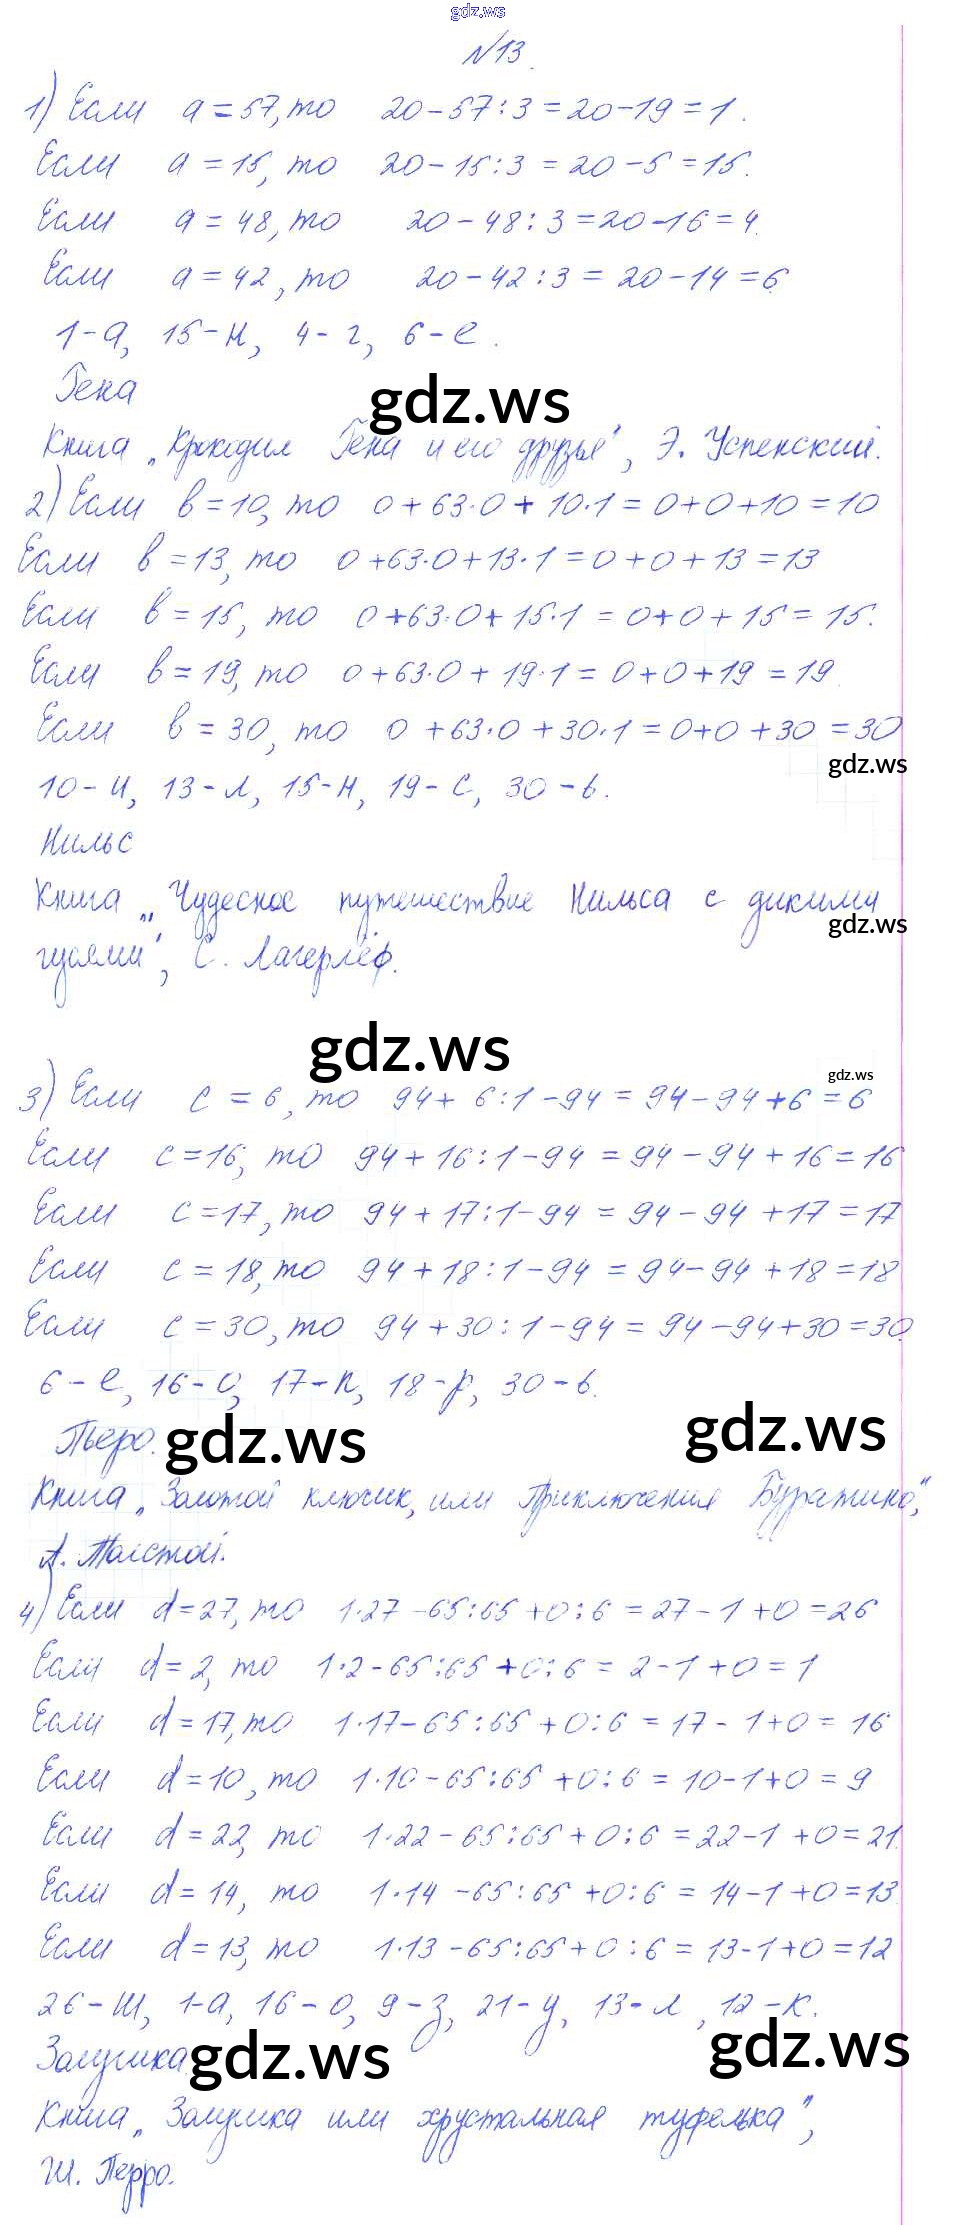 gdz.ws
№13.
1) Если а = 57, то 20 - 57 : 3 = 20 - 19 = 1.
Если а = 15, то 20 - 15 : 3 = 20 - 5 = 15.
Если а = 48, то 20 - 48 : 3 = 20 - 16 = 4.
Если а = 42, то 20 - 42 : 3 = 20 - 14 = 6
1 - а, 15 - н, 4 - г, 6 - е.
Гена
gdz.ws
Книга „Крокодил Гена и его друзья", Э. Успенский.
2) Если в = 10, то 0 + 63·0 + 10·1 = 0 + 0 + 10 = 10
Если в = 13, то 0 + 63·0 + 13·1 = 0 + 0 + 13 = 13
Если в = 15, то 0 + 63·0 + 15·1 = 0 + 0 + 15 = 15.
Если в = 19, то 0 + 63·0 + 19·1 = 0 + 0 + 19 = 19.
Если в = 30, то 0 + 63·0 + 30·1 = 0 + 0 + 30 = 30
gdz.ws
10 - и, 13 - л, 15 - н, 19 - с, 30 - ь.
Нильс
Книга „Чудесное путешествие Нильса с дикими
gdz.ws
гусями", С. Лагерлёф.
gdz.ws
gdz.ws
3) Если с = 6, то 94 + 6 : 1 - 94 = 94 - 94 + 6 = 6
Если с = 16, то 94 + 16 : 1 - 94 = 94 - 94 + 16 = 16
Если с = 17, то 94 + 17 : 1 - 94 = 94 - 94 + 17 = 17
Если с = 18, то 94 + 18 : 1 - 94 = 94 - 94 + 18 = 18
Если с = 30, то 94 + 30 : 1 - 94 = 94 - 94 + 30 = 30
6 - е, 16 - о, 17 - п, 18 - р, 30 - ь.
Пьеро.
gdz.ws
gdz.ws
Книга „Золотой ключик, или Приключения Буратино",
А. Толстой.
4) Если d = 27, то 1·27 - 65 : 65 + 0 : 6 = 27 - 1 + 0 = 26
Если d = 2, то 1·2 - 65 : 65 + 0 : 6 = 2 - 1 + 0 = 1
Если d = 17, то 1·17 - 65 : 65 + 0 : 6 = 17 - 1 + 0 = 16
Если d = 10, то 1·10 - 65 : 65 + 0 : 6 = 10 - 1 + 0 = 9
Если d = 22, то 1·22 - 65 : 65 + 0 : 6 = 22 - 1 + 0 = 21.
Если d = 14, то 1·14 - 65 : 65 + 0 : 6 = 14 - 1 + 0 = 13.
Если d = 13, то 1·13 - 65 : 65 + 0 : 6 = 13 - 1 + 0 = 12
26 - ш, 1 - а, 16 - о, 9 - з, 21 - у, 13 - л, 12 - к.
gdz.ws
Золушка
gdz.ws
Книга „Золушка или хрустальная туфелька",
Ш. Перро.